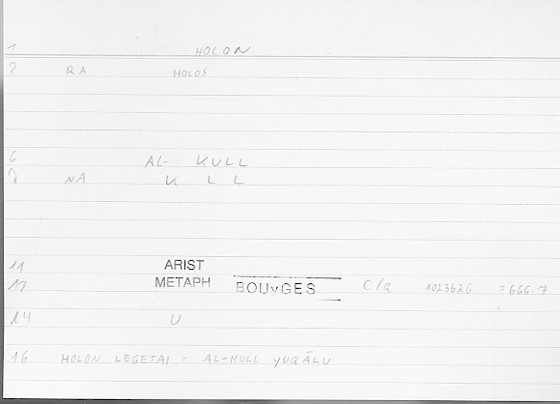 1 HOLON
2 RA HOLOS
6 AL- KULL
7 NA K L L
11 ARIST
12 METAPH BOUYGES C/a 1023b26 = 666.7
14 U
16 HOLON LEGETAI = AL-KULL YUQĀLU